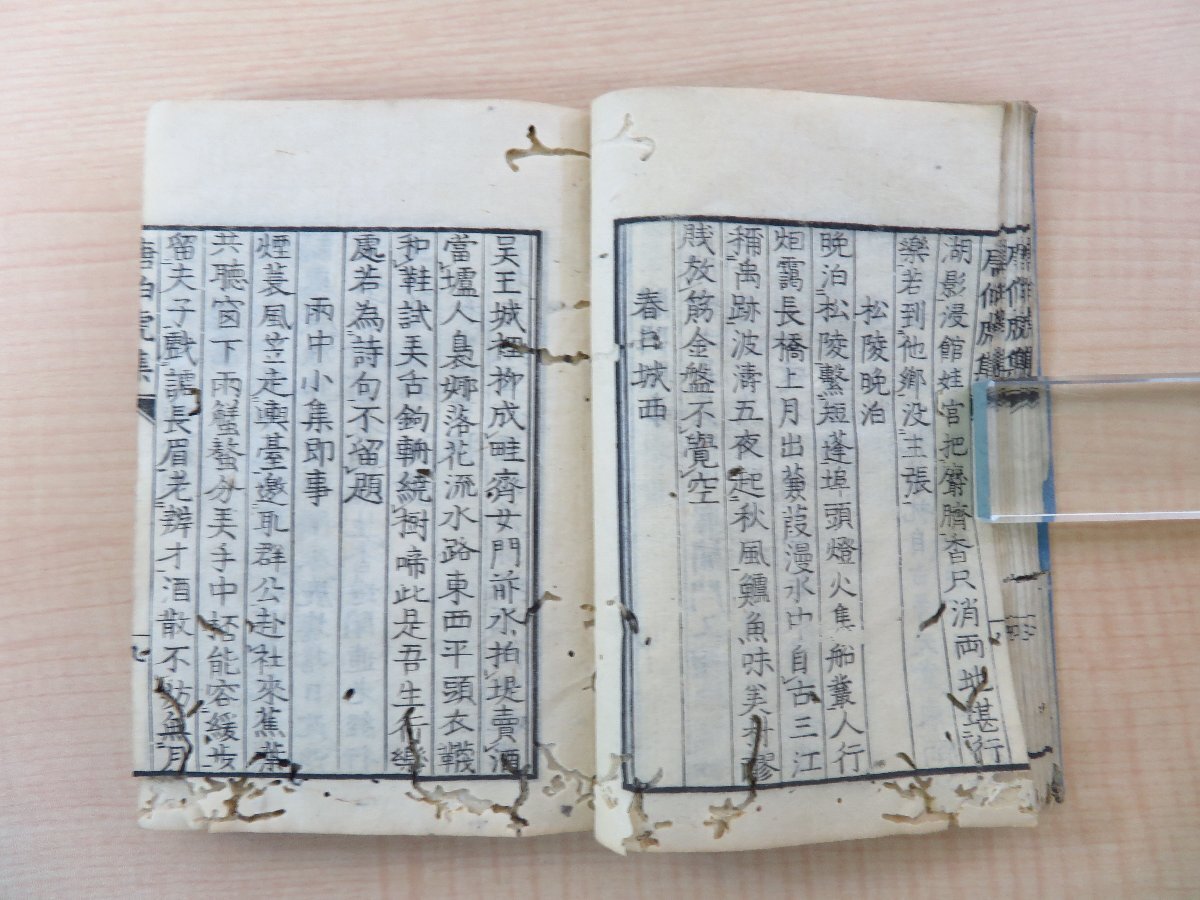 湖影漫館娃宮把麝臍杳只消両地堪行
樂若到他鄉没主張
松陵晚泊
晚泊松陵繫短蓬埠頭燈火集船叢人行
炬靄長橋上月出蒹葭漫水中自古三江
稱禹跡波濤五夜起秋風鱸魚味美村醪
賎放筋金盤不覺空
春日城西
吴王城裡柳成畦齊女門前水拍堤賣酒
當壚人裊娜落花流水路東西平頭衣襪
和鞋試弄舌鉤輈繞樹啼此是吾生行樂
處若為詩句不留題
雨中小集即事
煙蓑風笠走輿臺邀取群公赴社來蕉葉
共聽窗下雨蟹螯分弄手中杯能容緩步
留夫子戲謔長眉老辨才酒散不妨無月
唐伯虎集